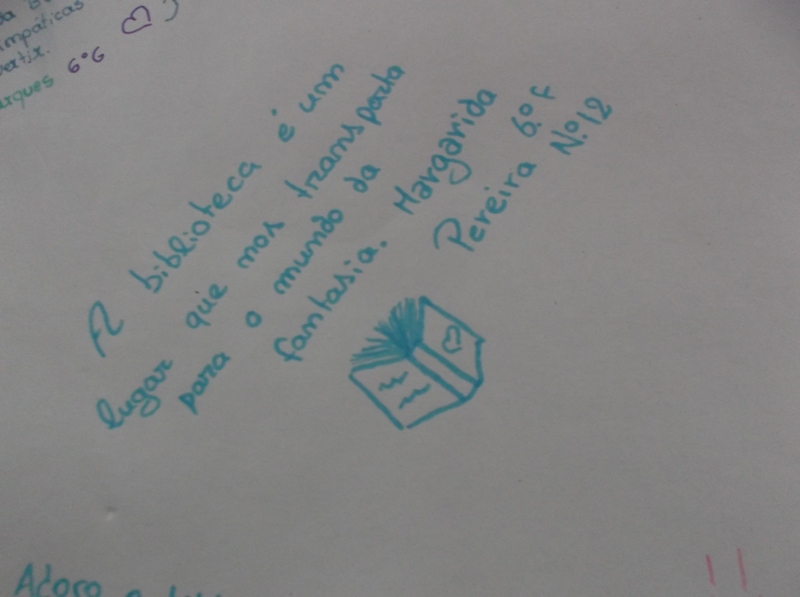 impáticas
6ºG
A biblioteca é um
lugar que nos transporta
para o mundo da
fantasia. Margarida
Pereira 6.º F
N.º 12
Adoro